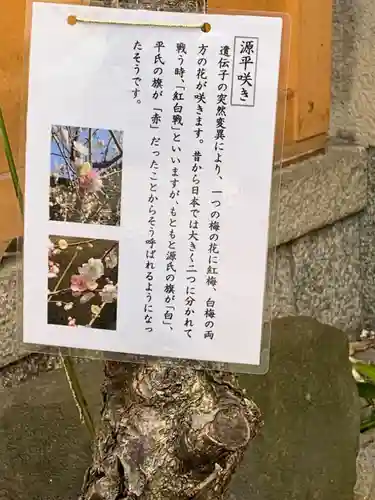 源平咲き
遺伝子の突然変異により、一つの梅の花に紅梅、白梅の両
方の花が咲きます。昔から日本では大きく二つに分かれて
戦う時、「紅白戦」といいますが、もともと源氏の旗が「白」、
平氏の旗が「赤」だったことからそう呼ばれるようになっ
たそうです。